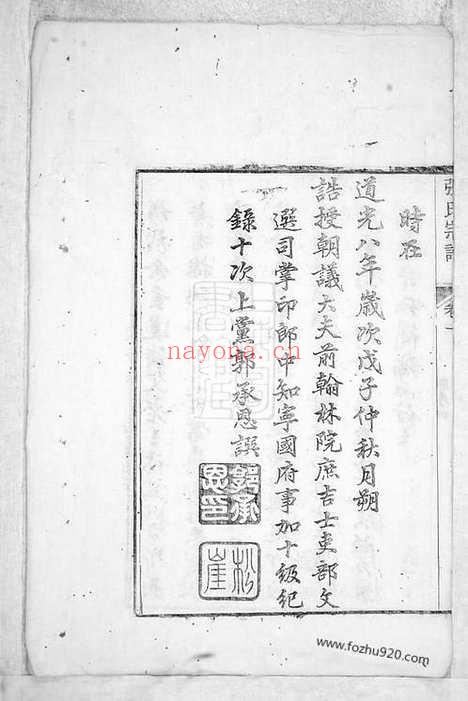 張氏宗譜 卷一
時在
道光八年歲次戊子仲秋月朔
誥授朝議大夫前翰林院庶吉士吏部文
選司掌印郎中知寧國府事加十級紀
錄十次上黨郭承恩譔
郭承恩印
松崖
nayona.cn
www.fozhu920.com